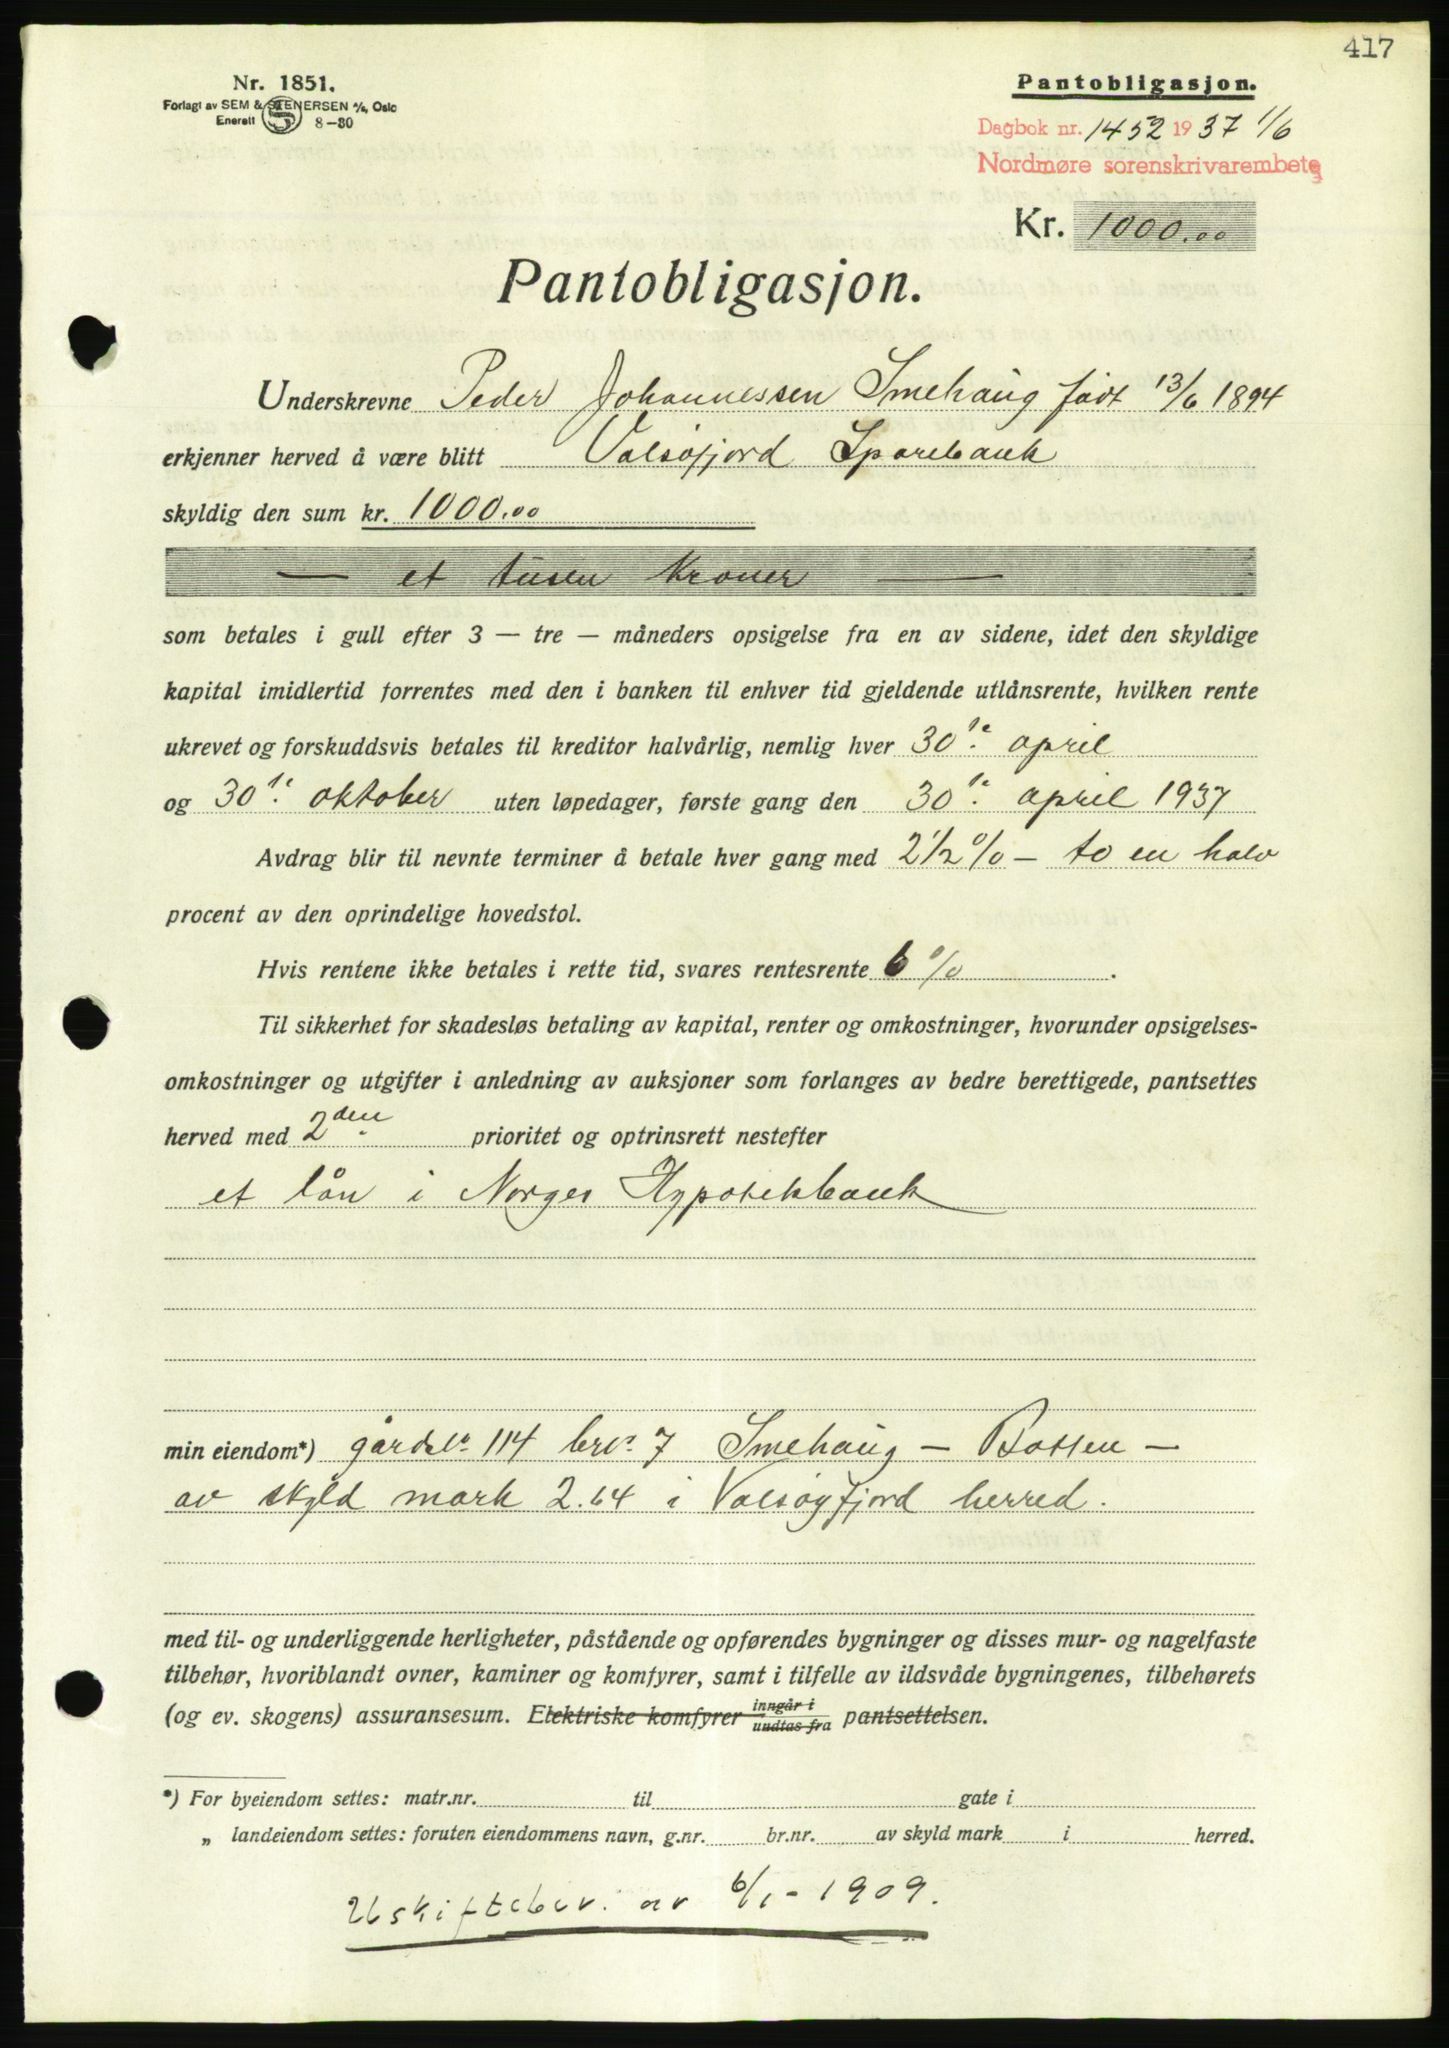 417
Nr. 1851.
Forlagt av SEM & STENERSEN A/S, Oslo
Enerett S 8-30
Pantobligasjon.
Dagbok nr. 1452 1937 1/6
Nordmøre sorenskrivarembete
Kr. 1000.00
Pantobligasjon.
Underskrevne Peder Johannessen Smehaug født 13/6 1894
erkjenner herved å være blitt Valsøfjord Sparebank
skyldig den sum kr. 1000.00
— et tusen kroner —
som betales i gull efter 3 — tre — måneders opsigelse fra en av sidene, idet den skyldige
kapital imidlertid forrentes med den i banken til enhver tid gjeldende utlånsrente, hvilken rente
ukrevet og forskuddsvis betales til kreditor halvårlig, nemlig hver 30te april
og 30te oktober uten løpedager, første gang den 30te april 1937
Avdrag blir til nevnte terminer å betale hver gang med 2 1/2 % — to en halv
procent av den oprindelige hovedstol.
Hvis rentene ikke betales i rette tid, svares rentesrente 6 % .
Til sikkerhet for skadesløs betaling av kapital, renter og omkostninger, hvorunder opsigelses-
omkostninger og utgifter i anledning av auksjoner som forlanges av bedre berettigede, pantsettes
herved med 2den prioritet og optrinsrett nestefter
et lån i Norges Hypotekbank
min eiendom*) gårdsnr. 114 brnr. 7 Smehaug — Botten —
av skyld mark 2.64 i Valsøyfjord herred.
med til- og underliggende herligheter, påstående og opførendes bygninger og disses mur- og nagelfaste
tilbehør, hvoriblandt ovner, kaminer og komfyrer, samt i tilfelle av ildsvåde bygningenes, tilbehørets
(og ev. skogens) assuransesum. Elektriske komfyrer inngår i / undtas fra pantsettelsen.
*) For byeiendom settes: matr.nr. til gate i
„ landeiendom settes: foruten eiendommens navn, g.nr. br.nr. av skyld mark i herred.
Utskifteber. av 6/1 - 1909.